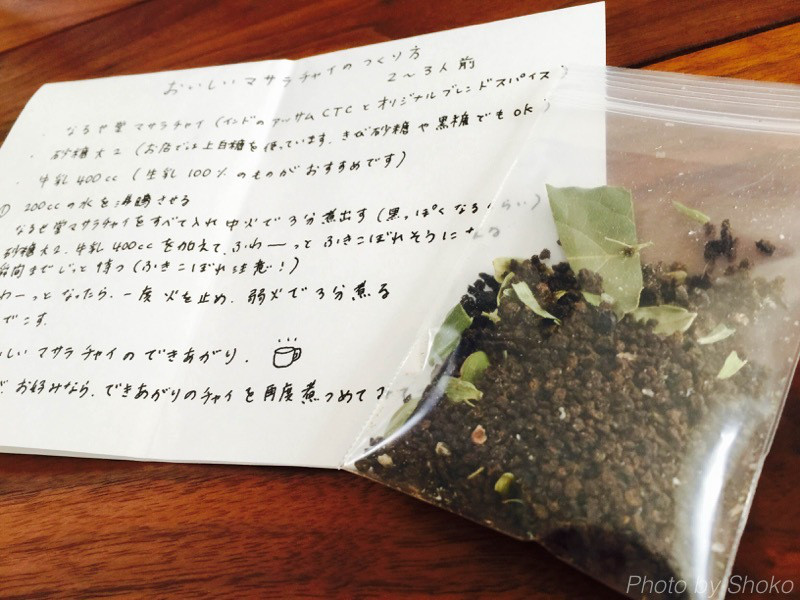 おいしいマサラチャイのつくり方
2〜3人前
・なるせ堂 マサラチャイ (インドのアッサムCTCとオリジナルブレンドスパイス)
・砂糖 大2 (お店では上白糖を使っています。きび砂糖や黒糖でもOK)
・牛乳 400cc (生乳100%のものがおすすめです)
① 200ccの水を沸騰させる
なるせ堂マサラチャイをすべて入れ 中火で3分煮出す (黒っぽくなるくらい)
砂糖大2、牛乳400ccを加えて、ふわーっとふきこぼれそうになる
瞬間までじっと待つ (ふきこぼれ注意!)
わーっとなったら、一度火を止め、弱火で3分煮る
でこす.
しいマサラチャイのできあがり.
お好みなら、できあがりのチャイを再度煮つめて
Photo by Shoko